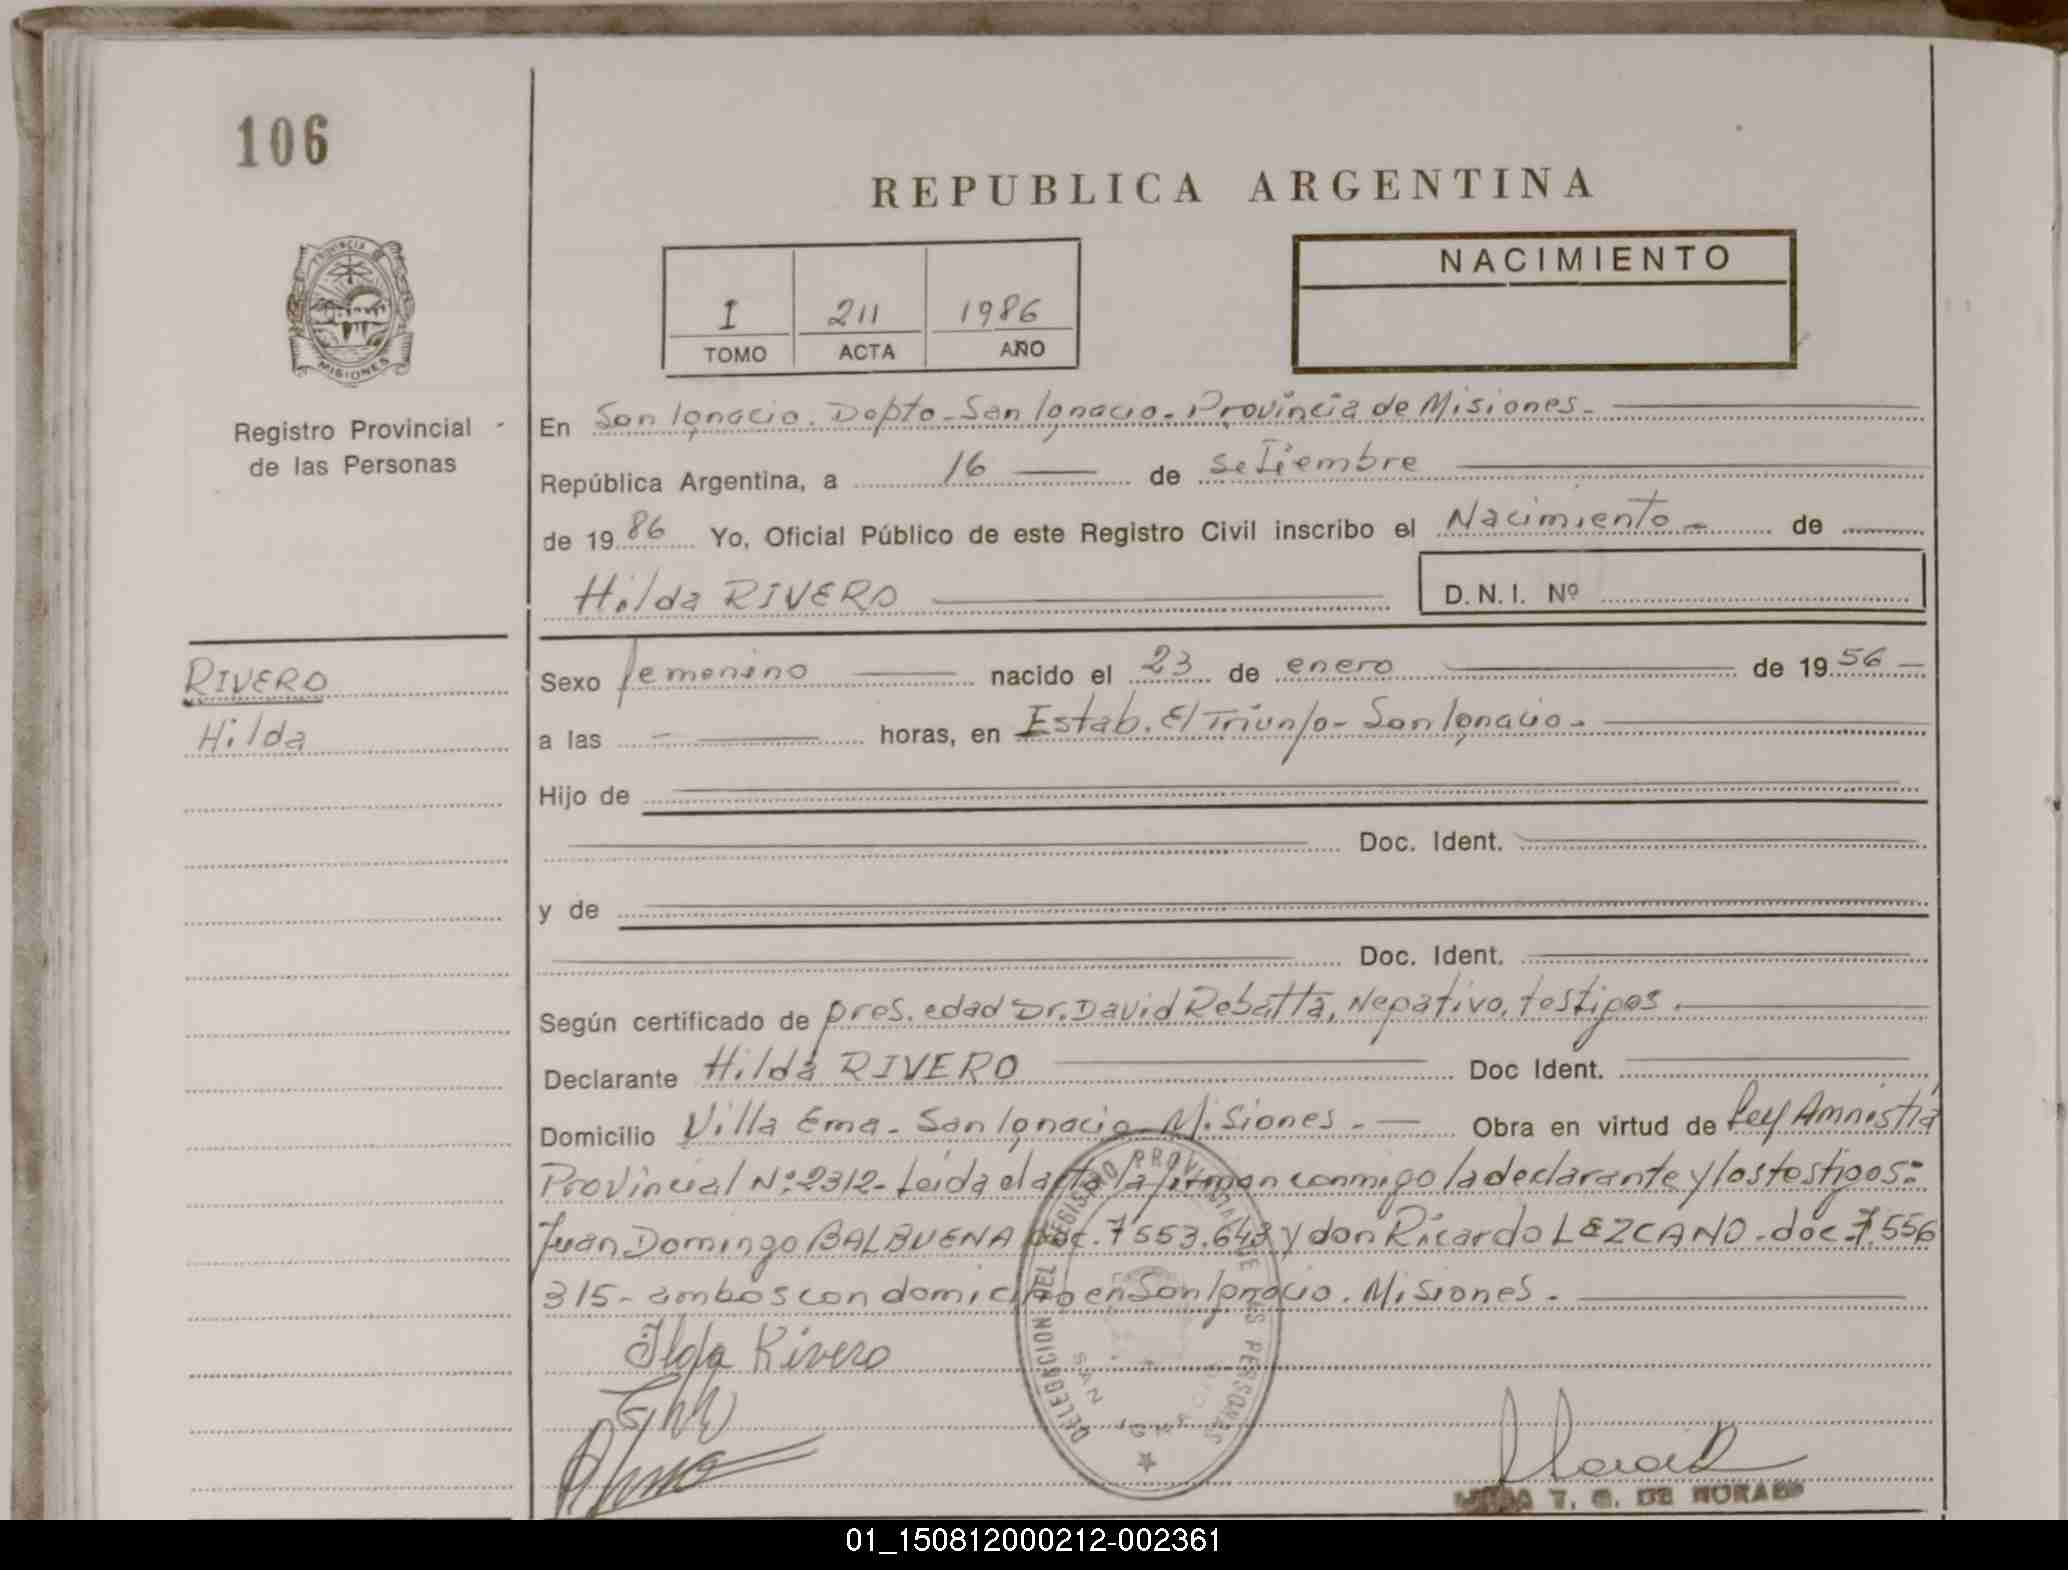 106
REPUBLICA ARGENTINA
PROVINCIA
MISIONES
Registro Provincial
de las Personas
NACIMIENTO
I 211 1986
TOMO ACTA AÑO
En San Ignacio. Dopto. San Ignacio. Provincia de Misiones.
República Argentina, a 16 de setiembre
de 1986 Yo, Oficial Público de este Registro Civil inscribo el Nacimiento de
Hilda RIVERO D.N.I. Nº
RIVERO
Hilda
Sexo femenino nacido el 23 de enero de 1956
a las - horas, en Estab. El Triunfo - San Ignacio.
Hijo de
Doc. Ident.
y de
Doc. Ident.
Según certificado de pres. edad Dr. David Rebatta, Negativo, testigos.
Declarante Hilda RIVERO Doc Ident.
Domicilio Villa Ema. San Ignacio Misiones. Obra en virtud de Ley Amnistia
Provincial Nº 2312. Leida el acta la firman conmigo la declarante y los testigos:
Juan Domingo BALBUENA doc. 7553.643 y don Ricardo LEZCANO. doc. 7.556
315 - ambos con domicilio en San Ignacio. Misiones.
Ilda Rivero
DELEGACION DEL REGISTRO PROVINCIAL DE LAS PERSONAS
SAN IGNACIO
T. G. DE MORAES
01_150812000212-002361